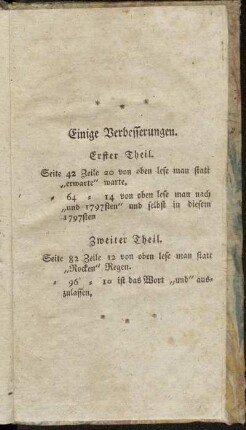 * * *
Einige Verbesserungen.
Erster Theil.
Seite 42 Zeile 20 von oben lese man statt
„erwarte“ warte.
„ 64 „ 14 von oben lese man nach
„und 1797sten“ und selbst in diesem
1797sten
Zweiter Theil.
Seite 82 Zeile 12 von oben lese man statt
„Rocken“ Regen.
„ 96 „ 10 ist das Wort „und“ aus-
zulassen.
* * *